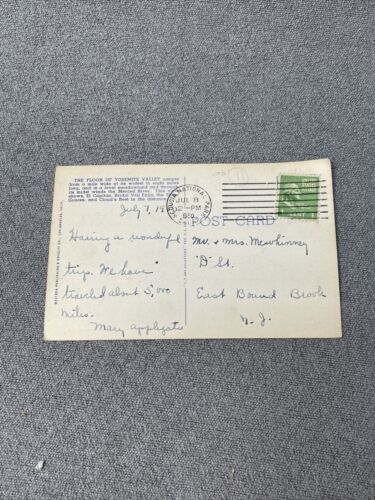 THE FLOOR OF YOSEMITE VALLEY ranges
from a mile wide at its widest to eight miles
long, and is a level meadowland and through
its midst winds the Merced River. This
shows El Capitan, Bridal Veil Falls, the
Graces, and Cloud's Rest in the distance
July 7, 19
Having a wonderful
trip. We have
traveled about 5,000
miles.
Mary Applegate
SEQUOIA NATIONAL PARK
JUL 8
2-PM
1950
POST CARD
Mr. + Mrs. Mewhinney
"D" St.
East Bound Brook
N. J.
1
CENT